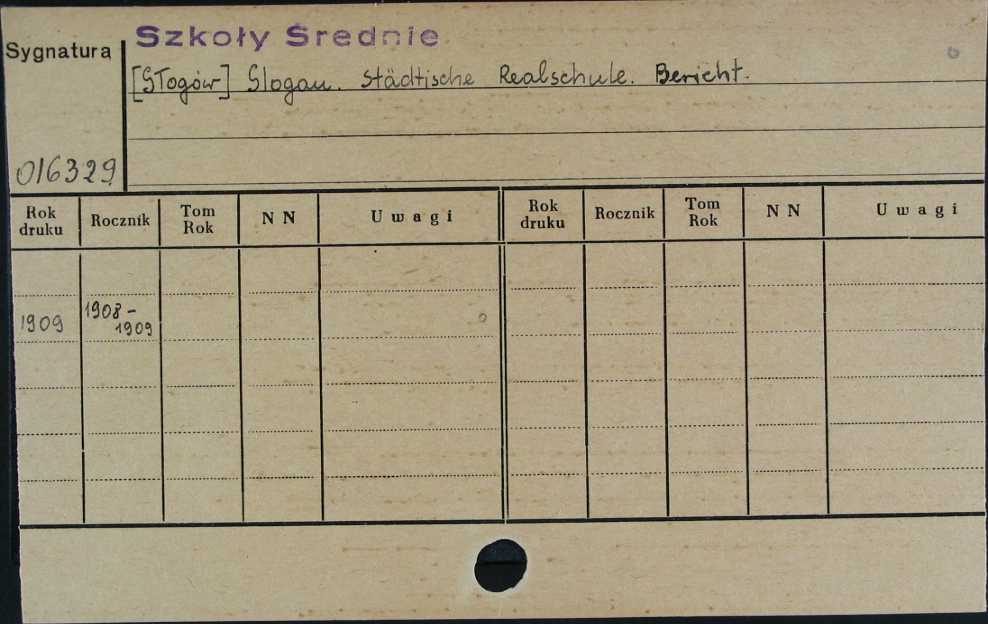 Szkoły Średnie
Sygnatura
[Głogów] Glogau. Städtische Realschule. Bericht.
016329
Rok druku Rocznik Tom Rok NN Uwagi Rok druku Rocznik Tom Rok NN Uwagi
1909 1908-1909